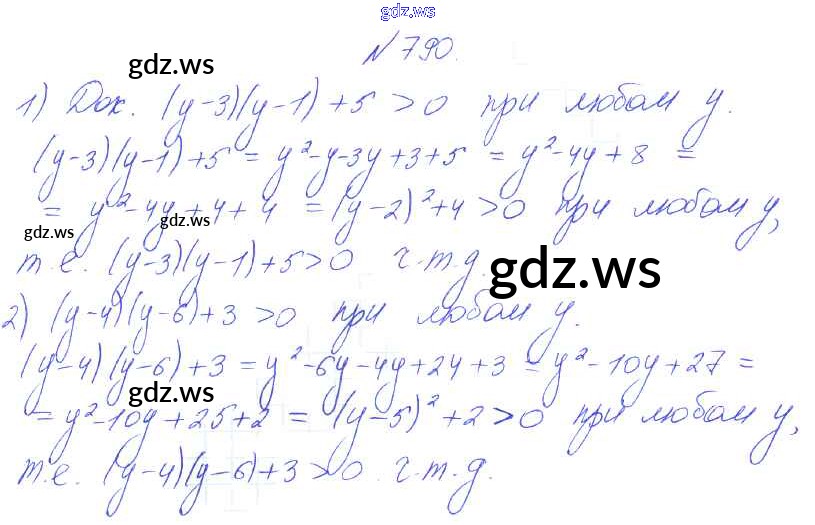 gdz.ws
N 790.
gdz.ws
1) Док. (y-3)(y-1)+5 >0 при любом y.
(y-3)(y-1)+5 = y²-y-3y+3+5 = y²-4y+8 =
= y²-4y+4+4 = (y-2)²+4 >0 при любом y,
gdz.ws
gdz.ws
т.е. (y-3)(y-1)+5>0 ч.т.д.
gdz.ws
2) (y-4)(y-6)+3 >0 при любом y.
(y-4)(y-6)+3 = y²-6y-4y+24+3 = y²-10y+27 =
gdz.ws
= y²-10y+25+2 = (y-5)²+2>0 при любом y,
т.е. (y-4)(y-6)+3>0 ч.т.д.